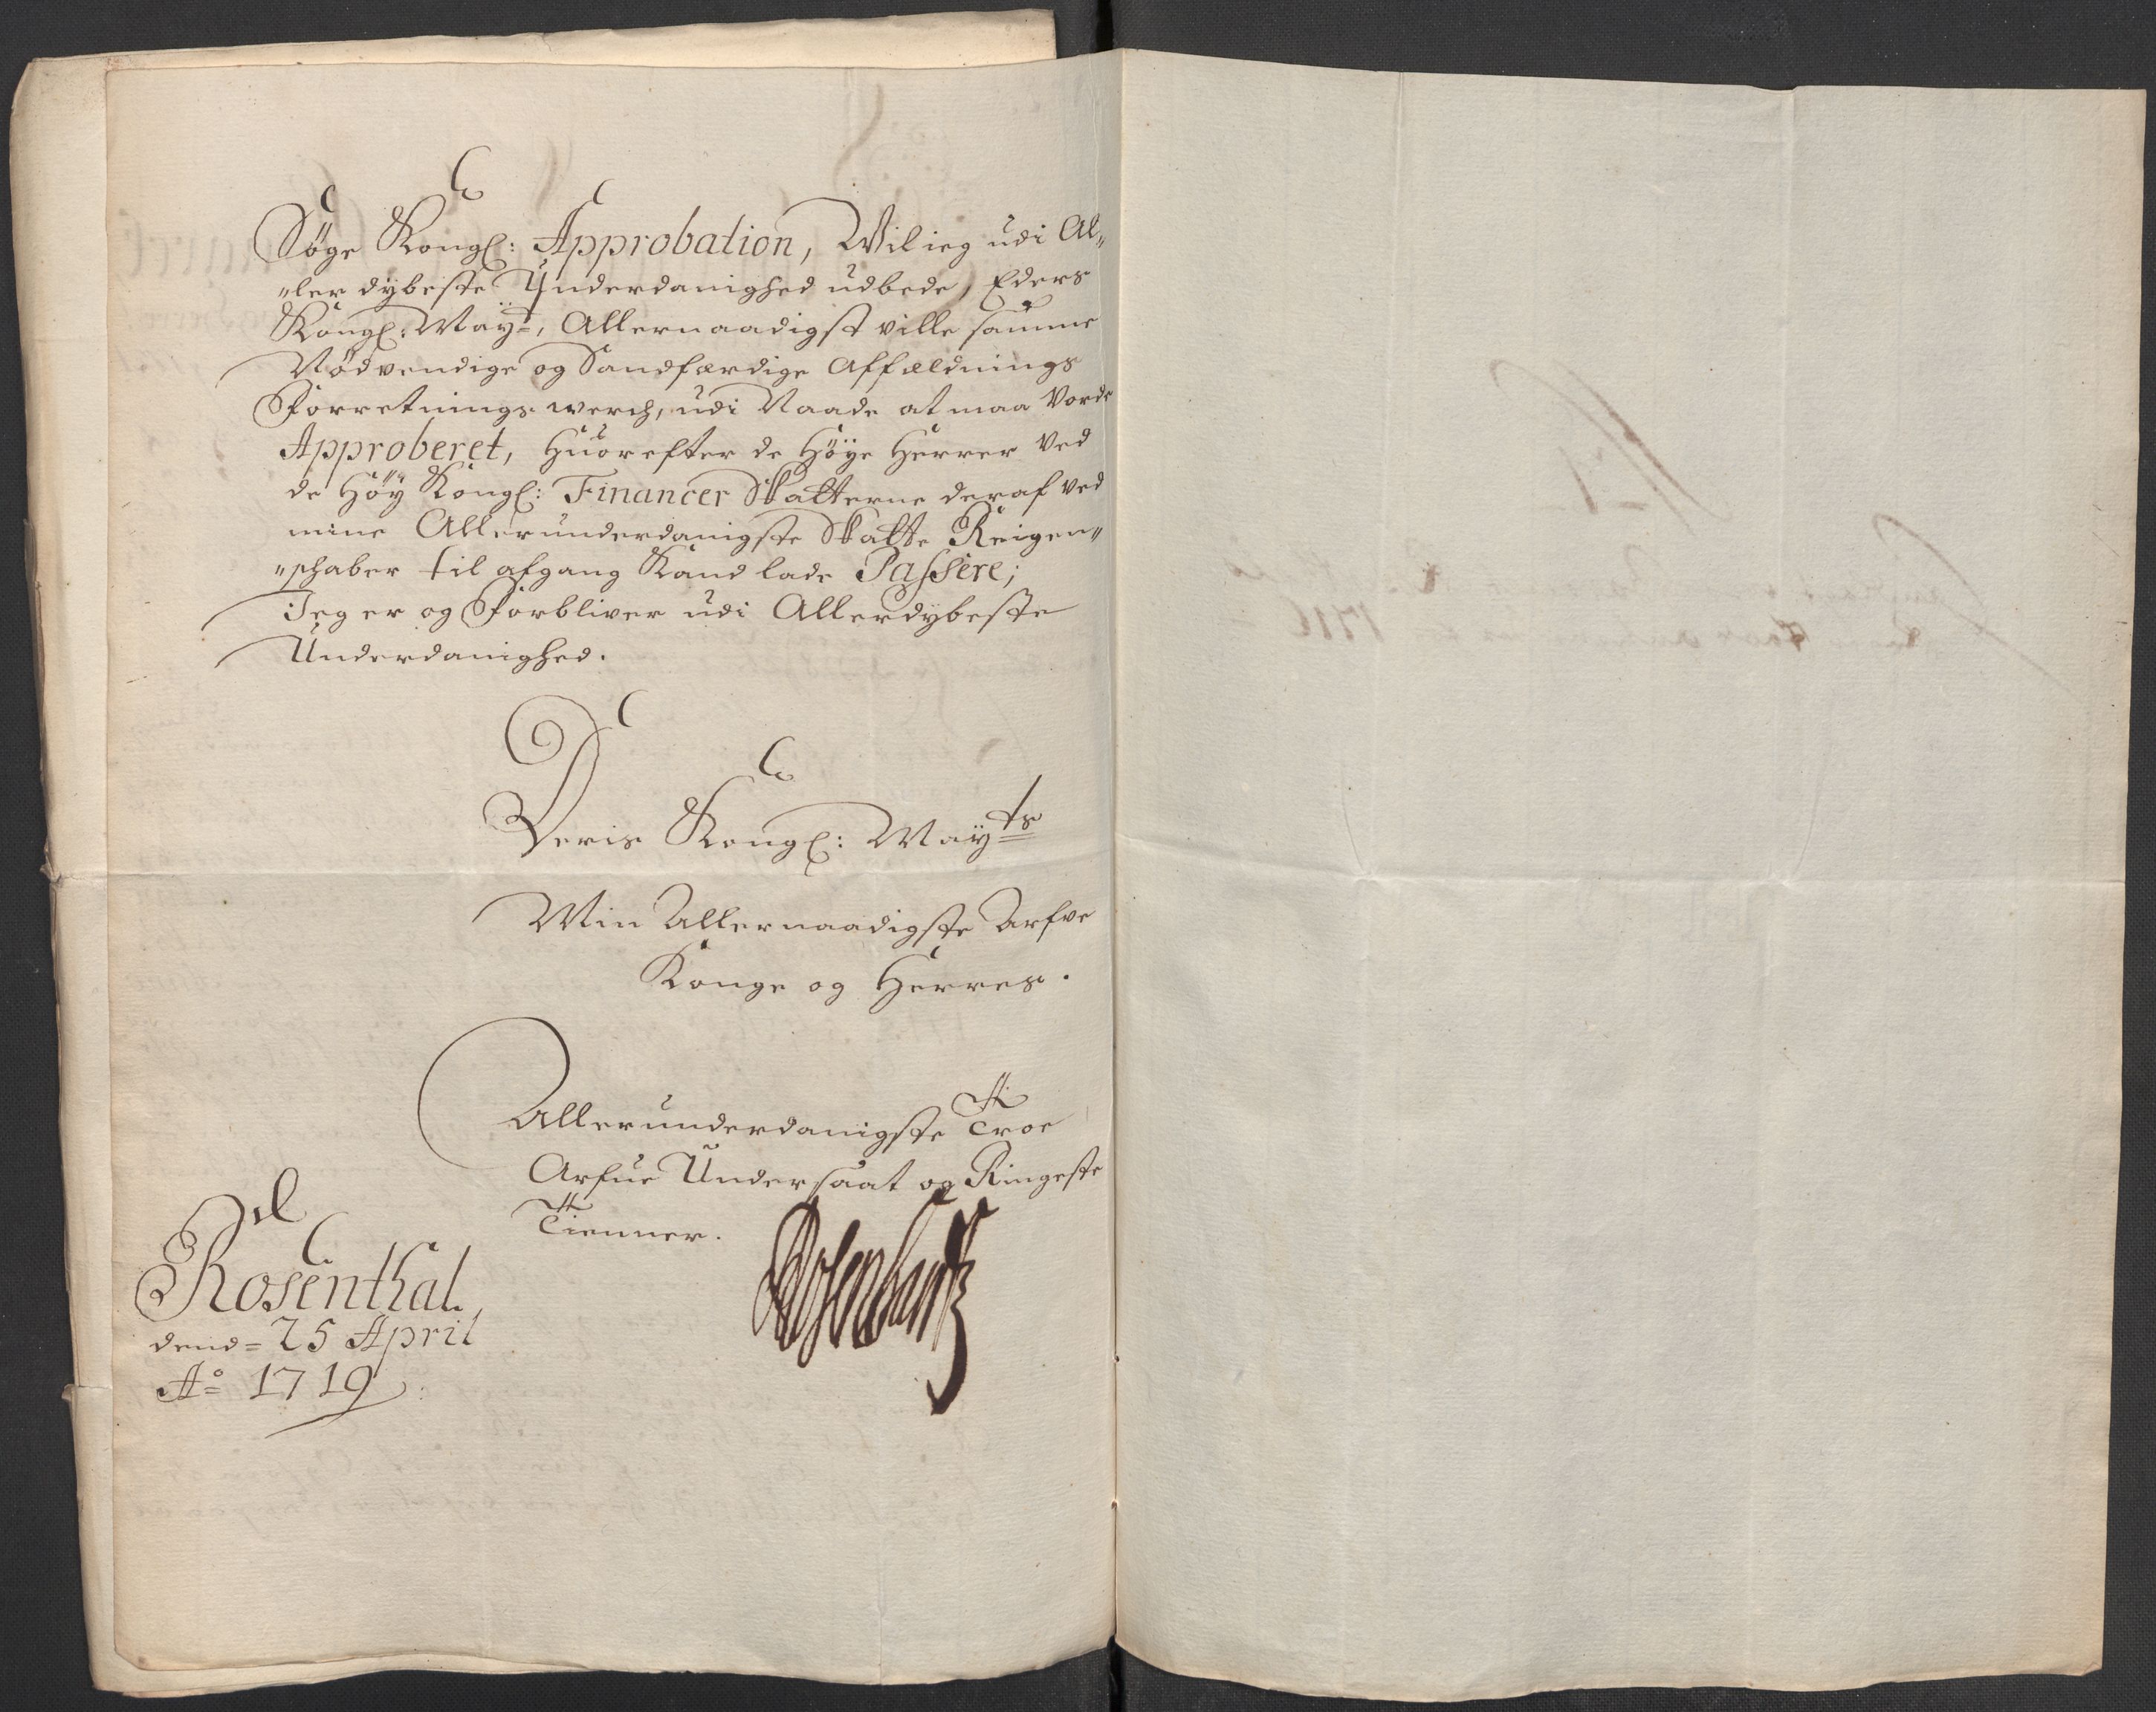 Søge Kongl: Approbation, Wil ieg udi Al„
„ler dybeste Underdanighed udbede, Eders
Kongl: May:t, Allernaadigst ville samme
Nødvendige og Sandfærdige Affældnings
Forretnings werch, udi Naade at maa Vorde
Approberet, Huorefter de Høye Herrer Ved
de Høy Kongl: Financer Skatterne deraf ved
mine Allerunderdanigste Skatte Reigen„
„schaber til afgang Kand lade Passere;
Jeg er og Forbliver udi Allerdybeste
Underdanighed.
Deris Kongl: Mayts
Min Allernaadigste Arfve
Konge og Herres.
Allerunderdanigste Troe
Arfue Undersaat og Ringeste
Tienner.
Rosenthal,
dend= 25 April
Ao 1719